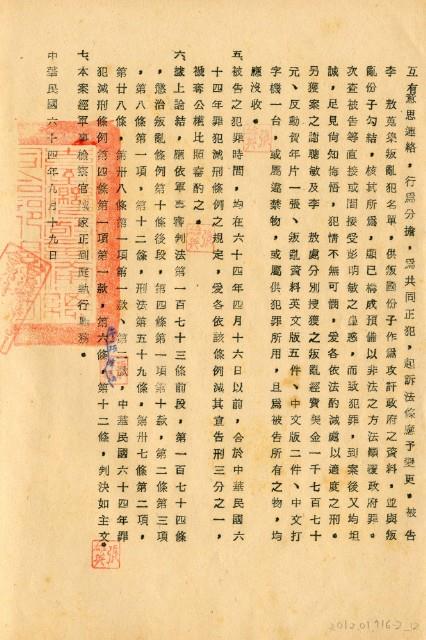 互有意思連絡，行爲分擔，爲共同正犯，起訴法條應予變更。被告
李　敖蒐集叛亂犯名單，供叛國份子作爲攻訐政府之資料，並與叛
亂份子勾結，核其所爲，顯已構成預備以非法之方法顛覆政府罪。
次查被告等直接或間接受彭明敏之蠱惑，而致犯罪，到案後又均坦
誠，足見尚知悔悟，犯情不無可憫，爰各依法酌減處以適度之刑。
另獲案之謝聰敏及李　敖處分別搜獲之叛亂經費美金一千七百七十
元、反動賀年片一張、叛亂資料英文版五件、中文版二件、中文打
字機一台，或屬違禁物，或屬供犯罪所用，且爲被告所有之物，均
應沒收。
五、被告之犯罪時間，均在六十四年四月十六日以前，合於中華民國六
十四年罪犯減刑條例之規定，爰各依該條例減其宣告刑三分之一，
褫奪公權比照審酌之。
六、據上論結，應依軍事審判法第一百七十三條前段，第一百七十四條
，懲治叛亂條例第十條後段，第四條第一項第十款，第二條第三項
，第八條第一項，第十二條，刑法第五十九條，第卅七條第二項，
第廿八條，第卅八條第一項第一款、第二款，中華民國六十四年罪
犯減刑條例第四條第一項第一款，第六條，第十二條，判決如主文。
七、本案經軍事檢察官　家正到庭執行職務。
中華民國六十四年九月十九日
2012.01.716-2_12